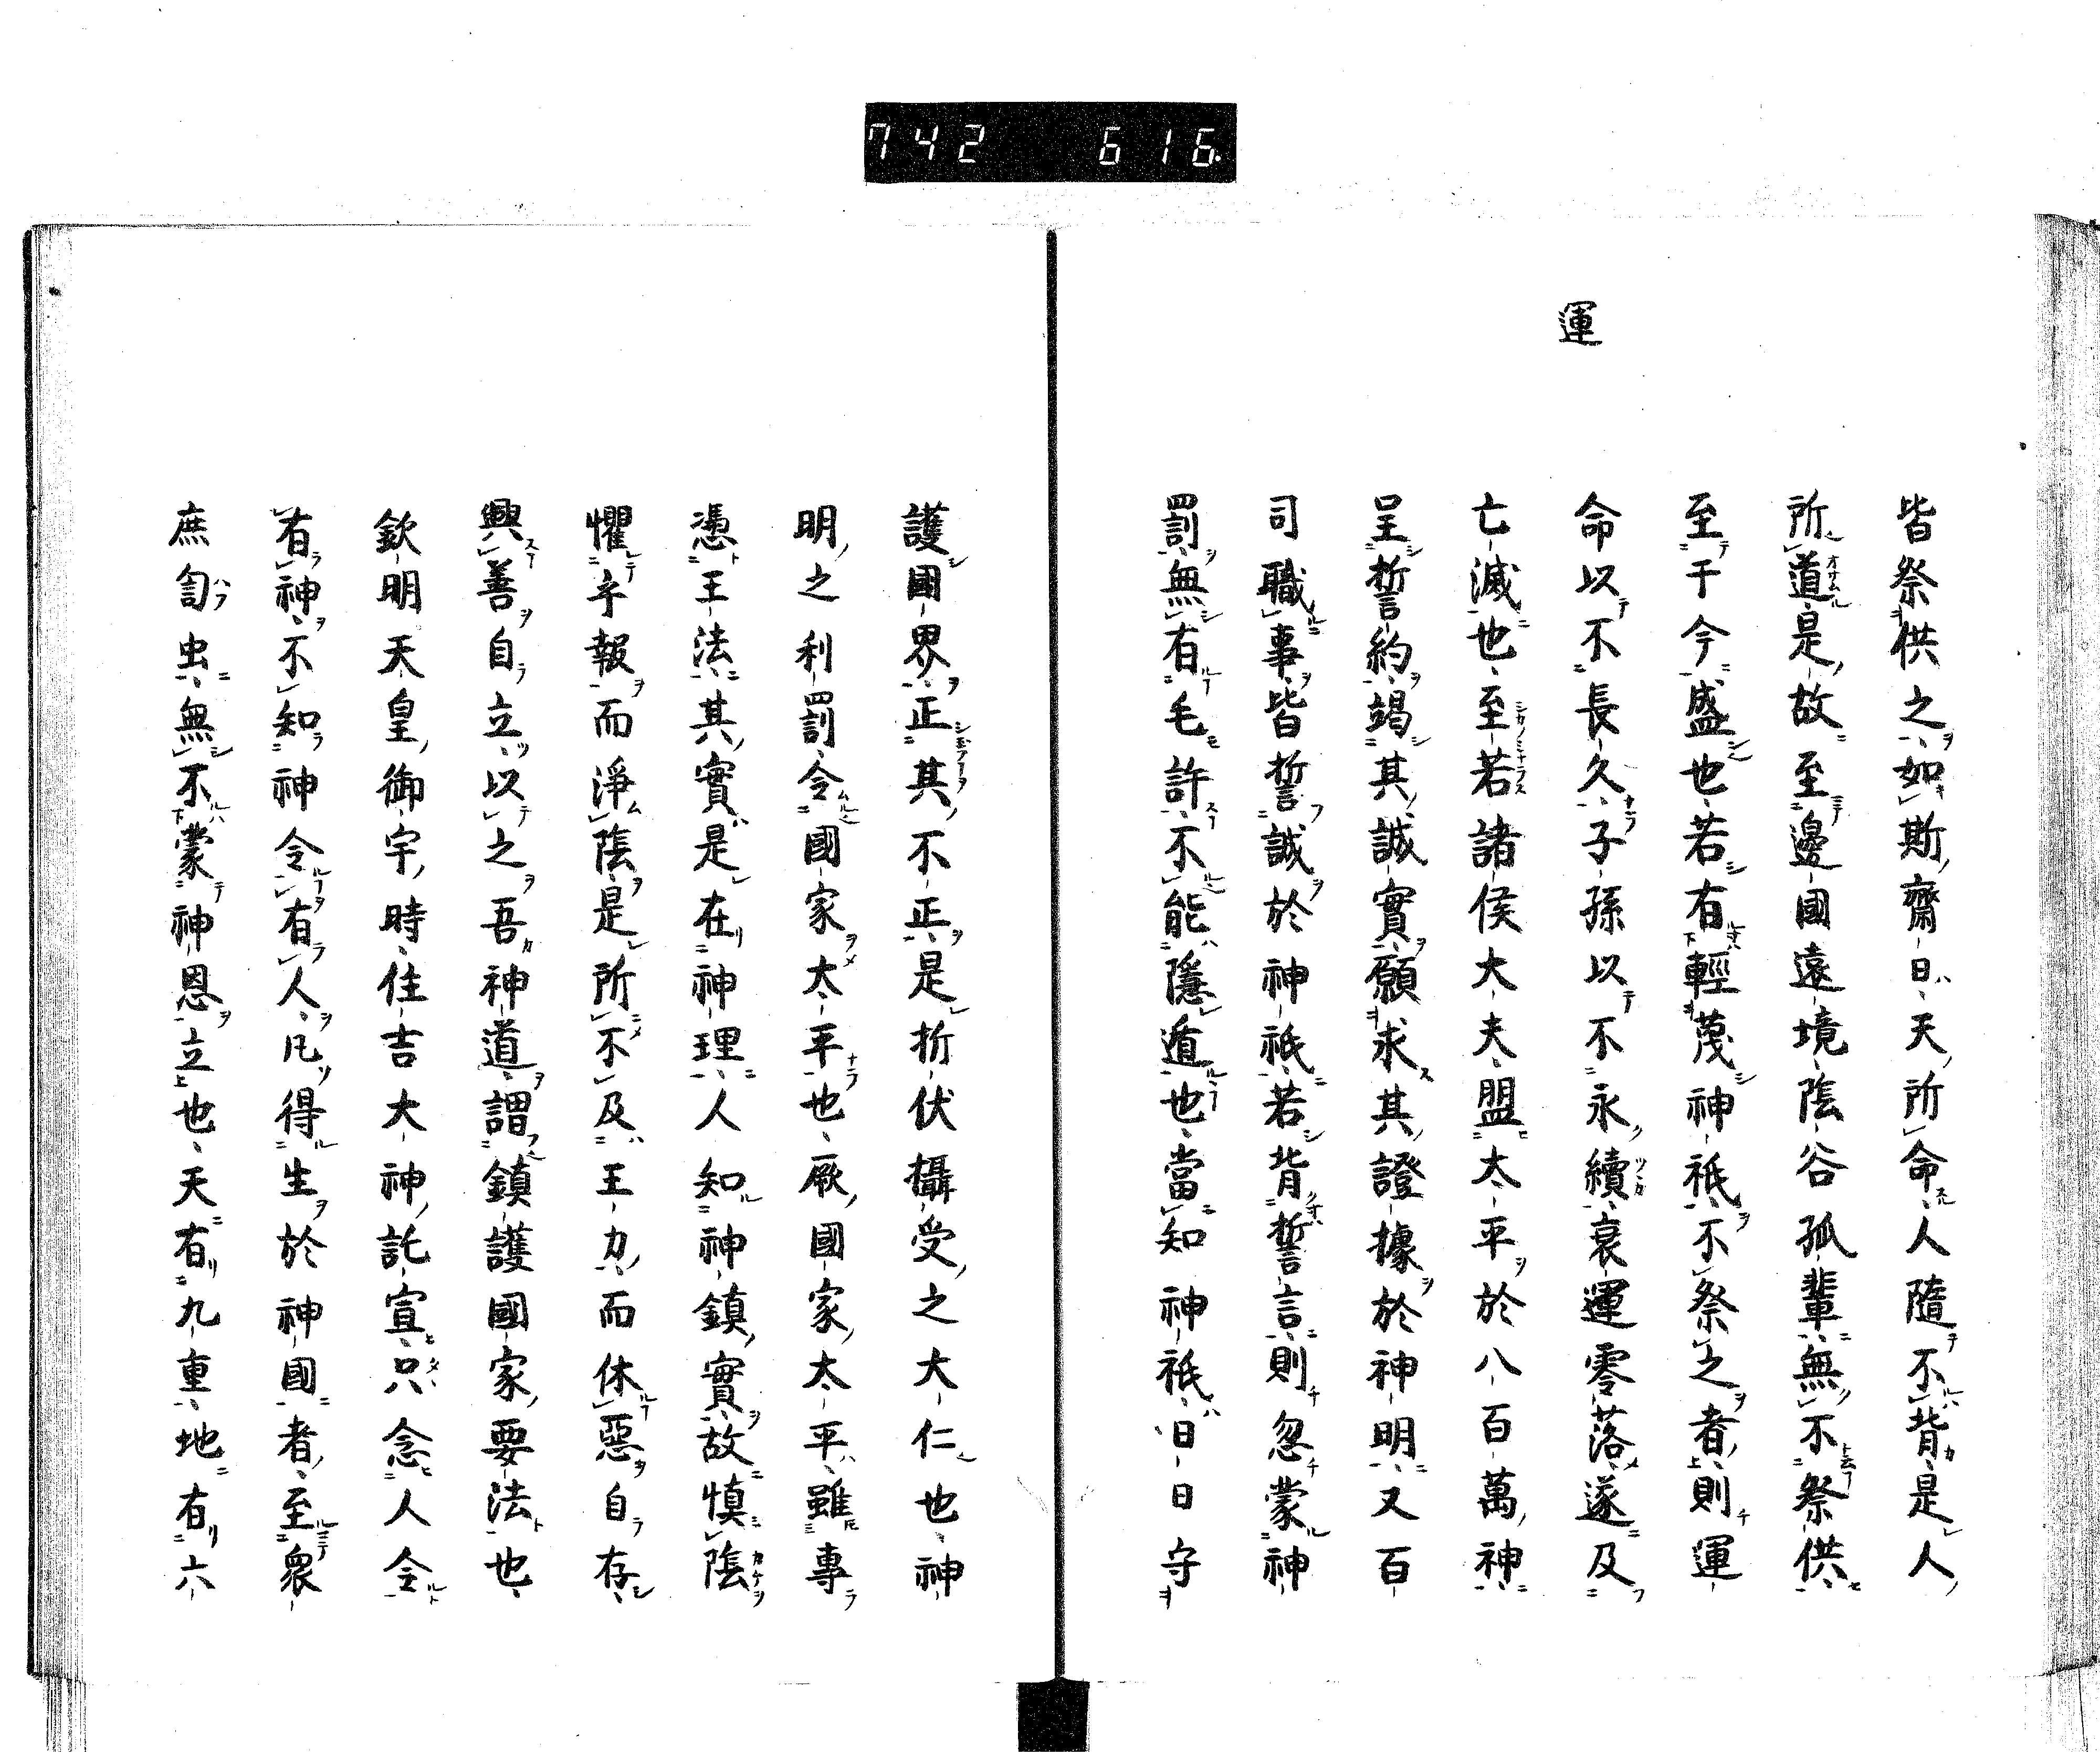 742 616
運
皆祭供之如斯齋日天所命人隨不背是人
所道是故至邊國遠境陰谷孤輩無不祭供
至于今盛也若有輕蔑神祇不祭之者則運
命以不長久子孫以不永續衰運零落遂及
亡滅也至若諸侯大夫盟太平於八百萬神
呈誓約竭其誠實願求其證據於神明又百
司職事皆誓誠於神祇若背誓言則忽蒙神
罰無有毛許不能隱遁也當知神祇日日守
護國界正其不正是折伏攝受之大仁也神
明之利罰令國家太平也厥國家太平雖專
憑王法其實是在神理人知神鎮實故慎陰
懼冥報而淨陰是所不及王力而休惡自存
興善自立以之吾神道謂鎮護國家要法也
欽明天皇御宇時住吉大神託宣只念人令
有神不知神令有人凡得生於神國者至衆
庶匐虫無不蒙神恩立也天有九重地有六